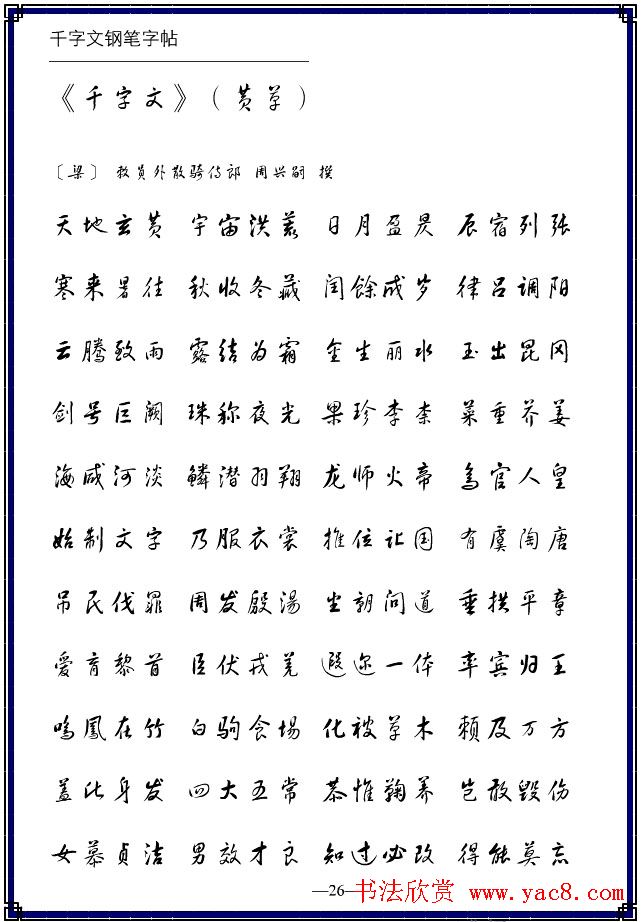 千字文钢笔字帖
《千字文》(黄草)
〔梁〕 敕员外散骑侍郎 周兴嗣 撰
天地玄黄 宇宙洪荒 日月盈昃 辰宿列张
寒来暑往 秋收冬藏 闰餘成岁 律吕调阳
云腾致雨 露结为霜 金生丽水 玉出昆冈
剑号巨阙 珠称夜光 果珍李柰 菜重芥姜
海咸河淡 鳞潜羽翔 龙师火帝 鸟官人皇
始制文字 乃服衣裳 推位让国 有虞陶唐
吊民伐罪 周发殷湯 坐朝问道 垂拱平章
爱育黎首 臣伏戎羌 遐迩一体 率宾归王
鸣鳳在竹 白驹食場 化被草木 赖及万方
盖此身发 四大五常 恭惟鞠养 岂敢毁伤
女慕贞洁 男效才良 知过必改 得能莫忘
—26— 书法欣赏 www.yac8.com